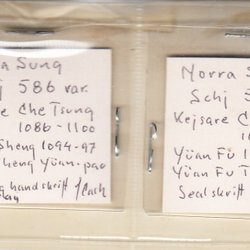 a Sung
j 586 var.
e Che Tsung
1086-1100
Sheng 1094-97
heng Yüan-pao
handskrift
Norra S
Schj
Kejsare C
1
Yüan Fu 1
Yüan Fu T
Sealskrift